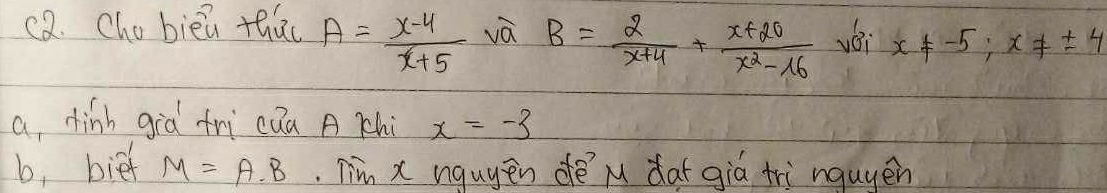 C2. Cho biểu thức A = \frac{x-4}{x+5} và B = \frac{2}{x+4} + \frac{x+20}{x^2-16} với x ≠ -5; x ≠ ± 4
a, tính giá trị của A khi x = -3
b, biết M = A.B. Tìm x nguyên để M đạt giá trị nguyên